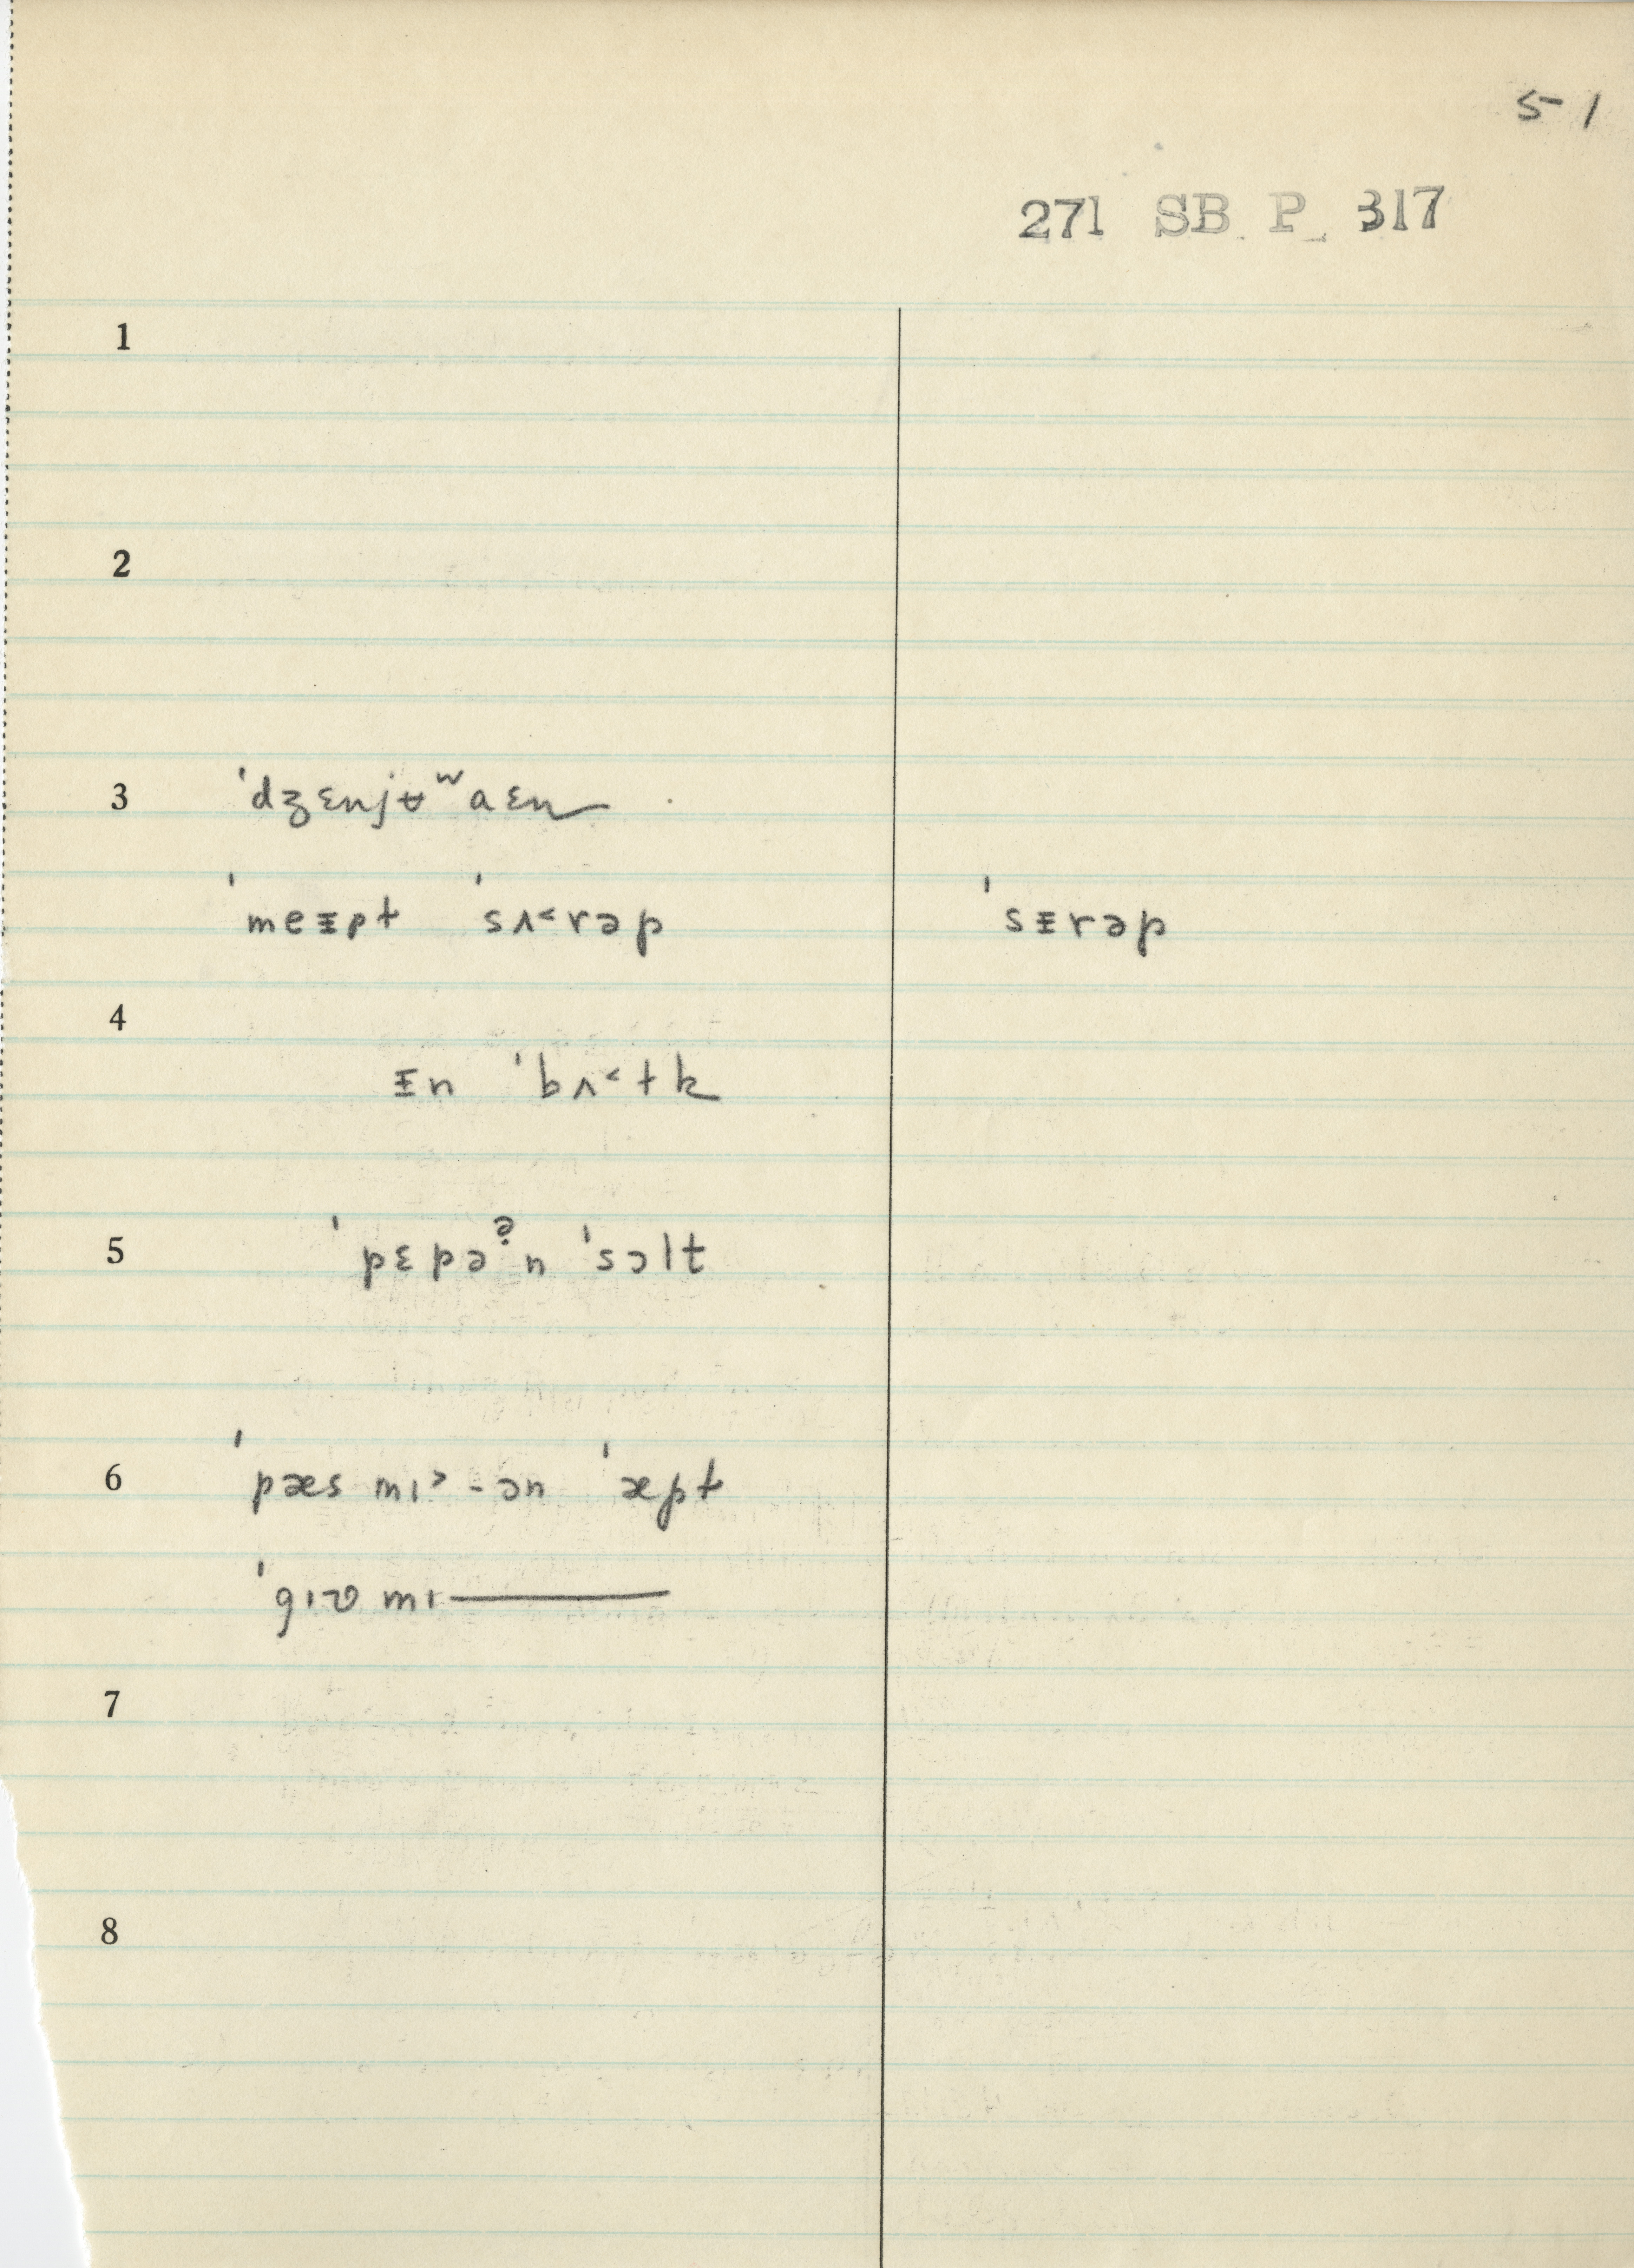 5-1
271 SB P 317
1
2
3 ˈdʒɛnjʉʷaɛn
ˈmeᵻpɫ ˈsʌ˂rəp ˈsᵻrəp
4
ᵻn ˈbʌ˂ɫk
5 ˈpɛpəˀn ˈsɔlt
6 ˈpæs mɪ˃-ən ˈæpɫ
ˈgɪv mɪ———
7
8